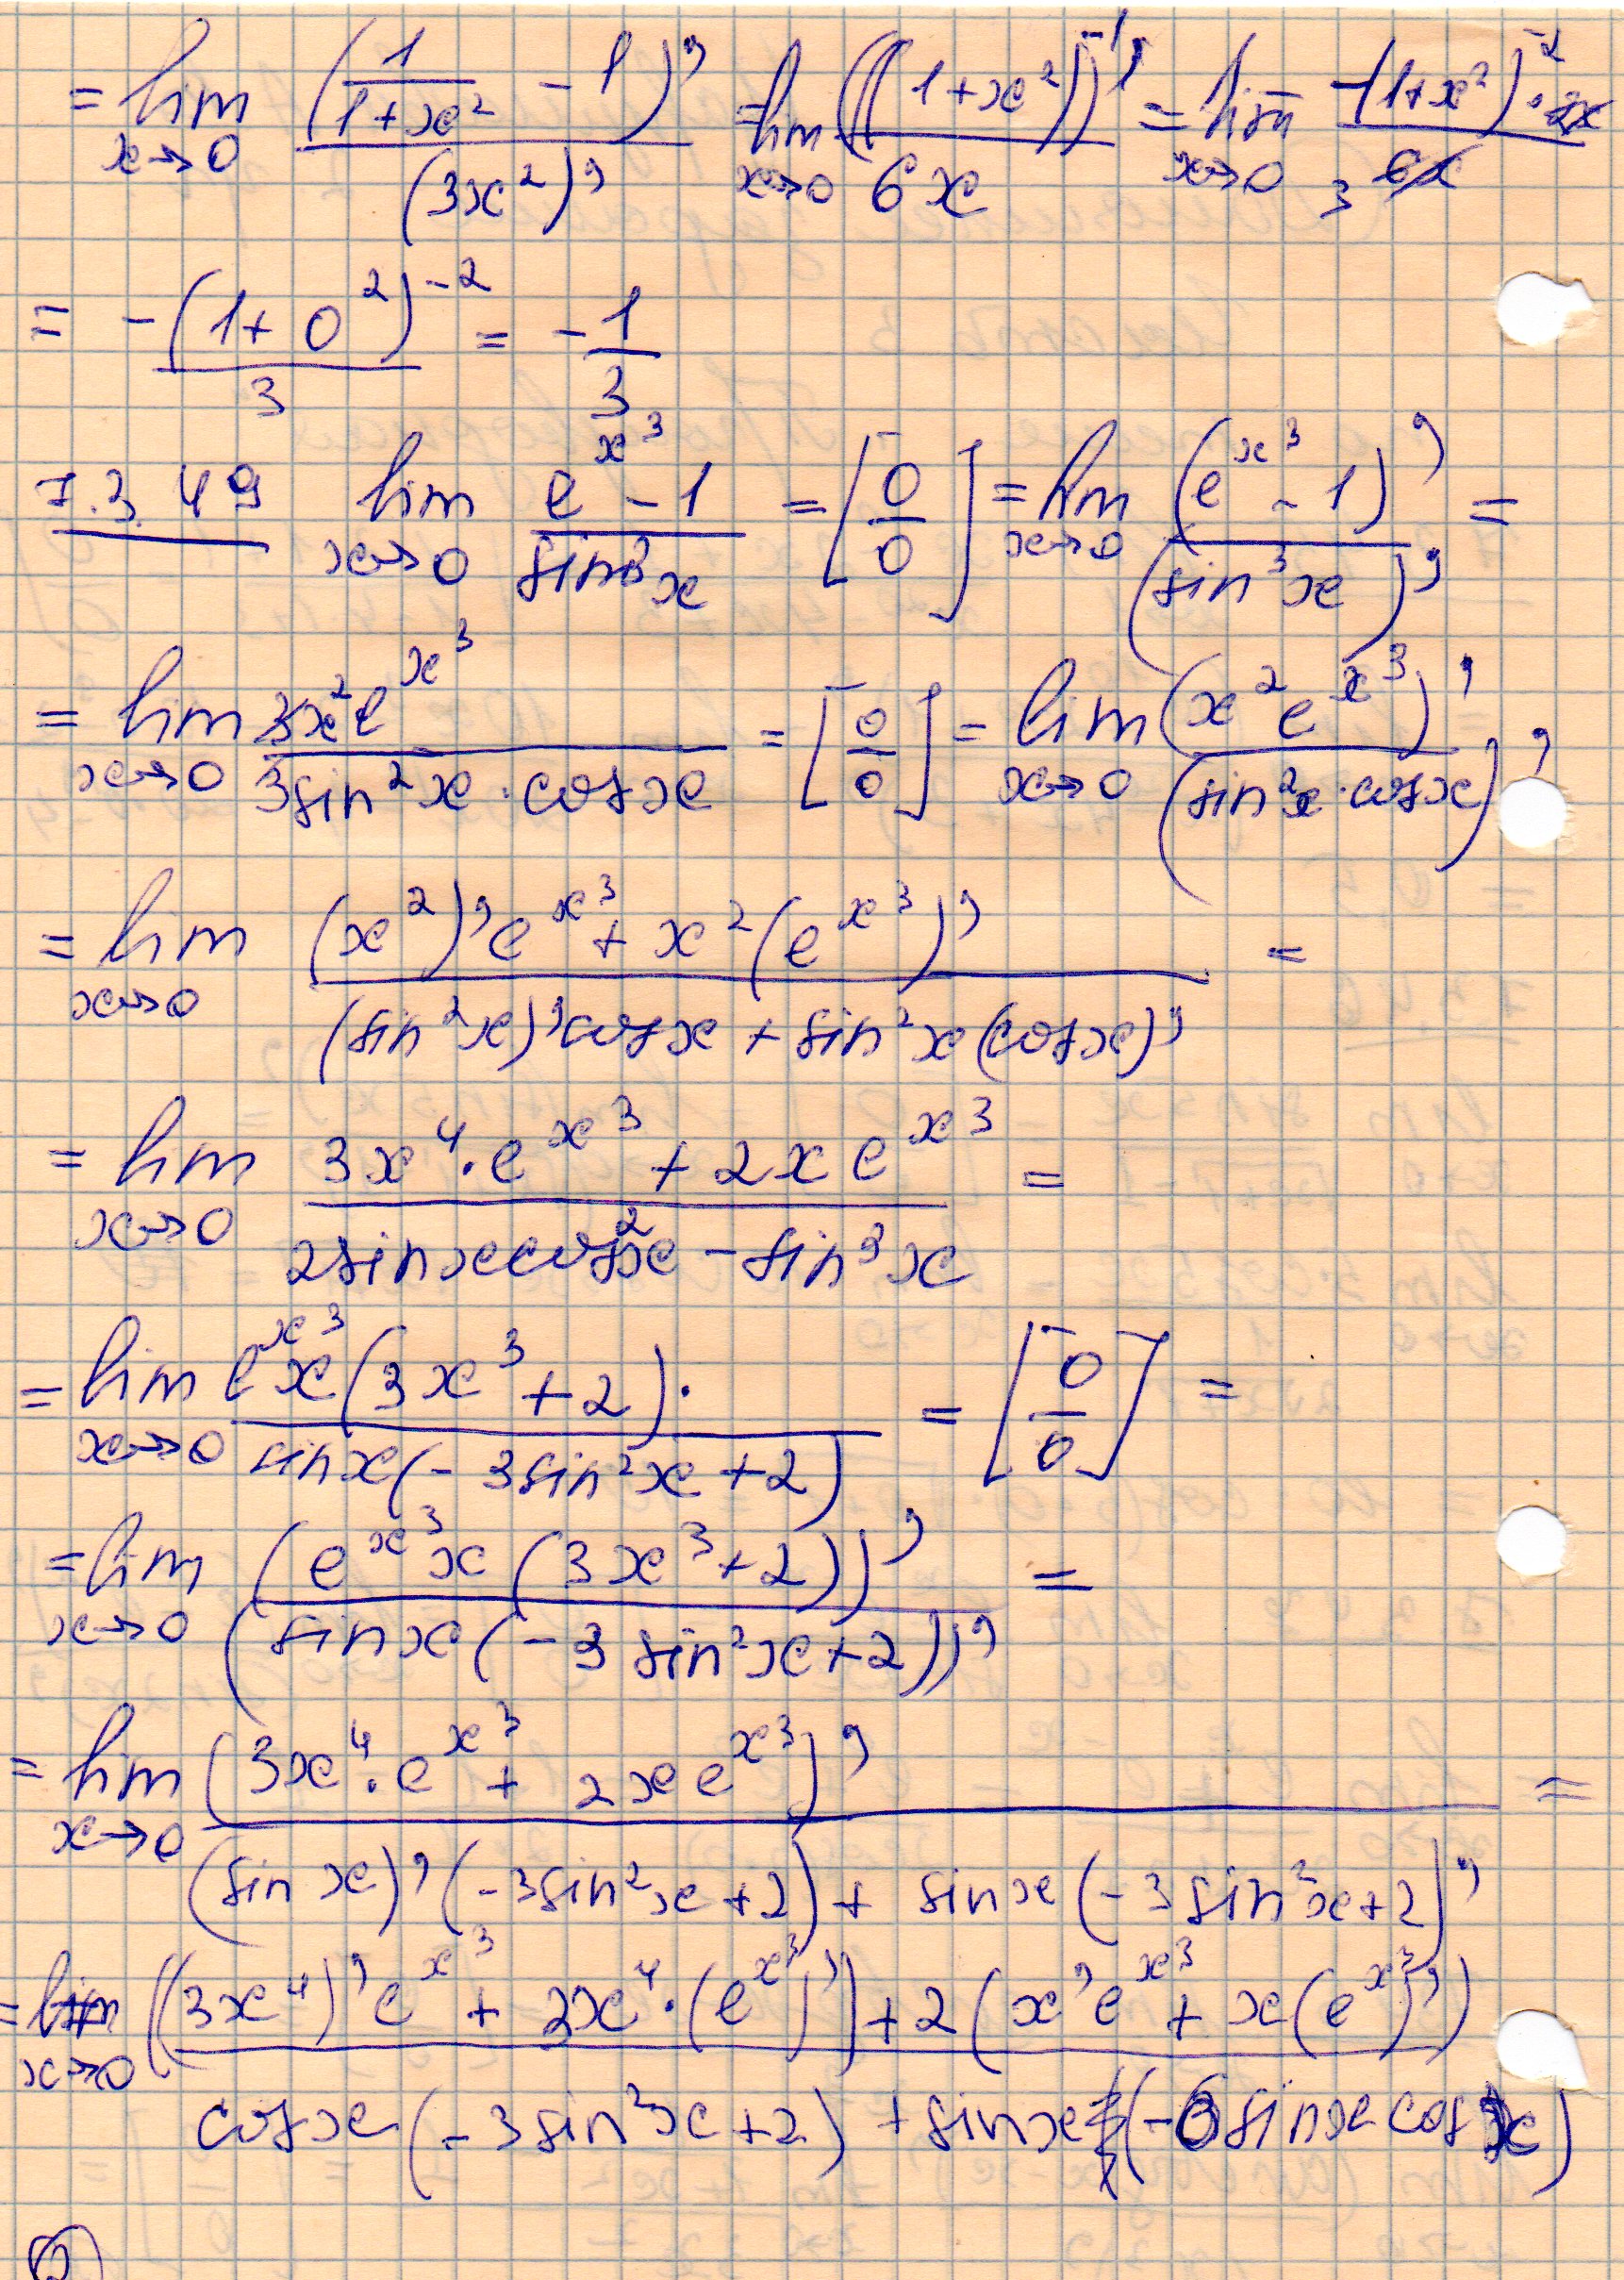 = lim x→0 (1/(1+x²) - 1)' / (3x²)' = lim x→0 (((1+x²))⁻¹)' / 6x = lim x→0 -(1+x²)⁻² · 2x / 3 6x
= -(1+0²)⁻² / 3 = -1/3
7.3.49 lim x→0 (e^(x³) - 1) / sin³x = [0/0] = lim x→0 (e^(x³) - 1)' / (sin³x)' =
= lim x→0 3x²e^(x³) / 3sin²x · cosx = [0/0] = lim x→0 (x²e^(x³))' / (sin²x · cosx)'
= lim x→0 ((x²)'e^(x³) + x²(e^(x³))') / ((sin²x)'cosx + sin²x(cosx)') =
= lim x→0 (3x⁴·e^(x³) + 2xe^(x³)) / (2sinxcos²x - sin³x) =
= lim x→0 e^(x³)x(3x³+2)· / sinx(-3sin²x+2) = [0/0] =
= lim x→0 (e^(x³)x(3x³+2))' / (sinx(-3sin²x+2))' =
= lim x→0 (3x⁴·e^(x³) + 2xe^(x³))' / ((sinx)'(-3sin²x+2) + sinx(-3sin²x+2)') =
= lim x→0 (((3x⁴)'e^(x³) + 3x⁴·(e^(x³))') + 2(x'e^(x³) + x(e^(x³))')) / (cosx(-3sin²x+2) + sinx(-6sinxcosx))